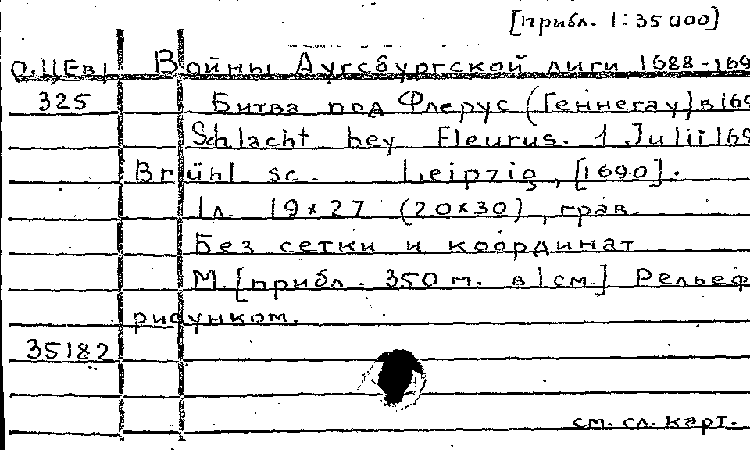 [прибл. 1:35 000]
О.ЦЕв1 Войны Аугсбургской лиги 1688-169
325 Битва под Флерус (Геннегау) в 169
Schlacht bey Fleurus. 1 Julii 169
Brühl sc. Leipzig, [1690].
1л. 19×27 (20×30), грав.
Без сетки и координат
М. [прибл. 350 м. в 1 см.] Рельеф
рисунком.
35182
см. сл. карт.